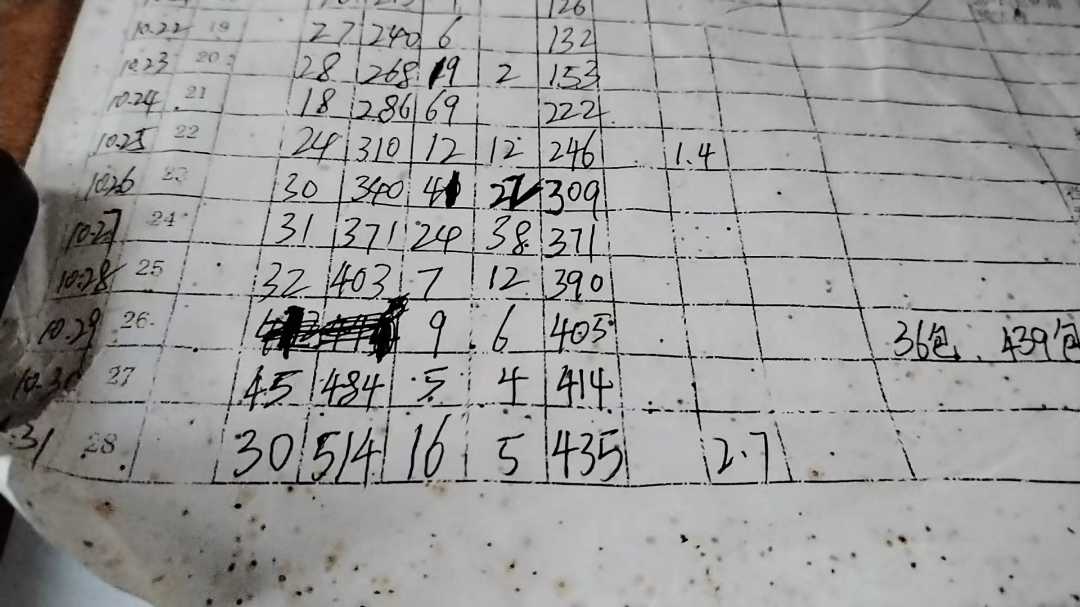 126
10.22 19 27 240 6 132
10.23 20 28 268 19 2 153
10.24 21 18 286 69 222
10.25 22 24 310 12 12 246 1.4
10.26 23 30 340 41 22 309
10.27 24 31 371 24 38 371
10.28 25 32 403 7 12 390
10.29 26 9 6 405 36包、439包
10.30 27 45 484 5 4 414
31 28 30 514 16 5 435 2.7